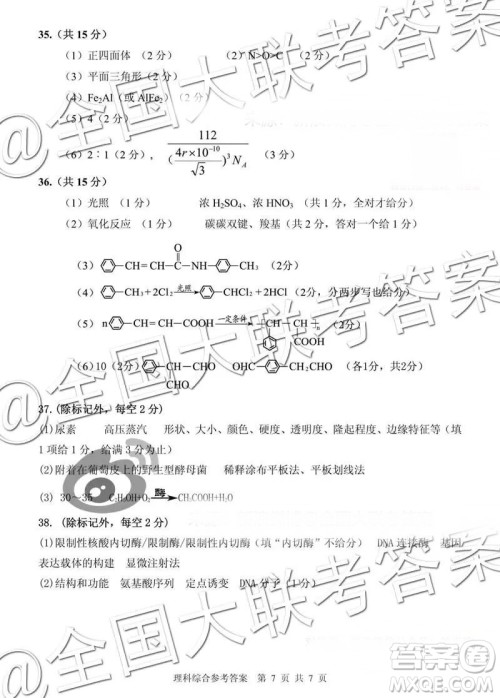 35.（共 15 分）
（1）正四面体 （2 分） （2）N>O>C （2 分）
（3）平面三角形（2 分）
（4）Fe2Al（或 AlFe2）（2 分）
（5）4（2 分）
（6）2：1（2 分）， 112/((4r×10^-10/√3)^3 N_A) （3 分）
36.（共 15 分）
（1）光照 （1 分） 浓 H2SO4、浓 HNO3 （共 1 分，全对才对）
（2）氧化反应 （1 分） 碳碳双键、羧基（共 2 分，答对一个个 1 分）
（3） —CH=CH—C(=O)—NH— —CH3 （2分）
（4） —CH3+2Cl2 光照 —CHCl2+2HCl（2 分，分两步写也给分）
（5） n —CH=CH—COOH 一定条件 CH—CH n COOH （2分）
（6）10（2 分） CH—CHO CHO OHC— —CH2CHO （各1分，共2分）
37.(除标记外，每空 2 分)
(1)尿素 高压蒸汽 形状、大小、颜色、硬度、透明度、隆起程度、边缘特征等（填
1 项给 1 分，给满 3 分为止）
(2)附着在葡萄皮上的野生型酵母菌 稀释涂布平板法、平板划线法
(3) 30～35 C2H5OH+O2 酶 CH3COOH+H2O
38.（除标记外，每空 2 分）
(1)限制性核酸内切酶/限制酶/限制性内切酶（填“内切酶”不给分） DNA 连接酶 基因
表达载体的构建 显微注射法
(2)结构和功能 氨基酸序列 定点诱变 DNA 分子（1 分）
理科综合参考答案 第 7 页 共 7 页
@全国大联考答案
@全国大联考答案
@全国大联考答案